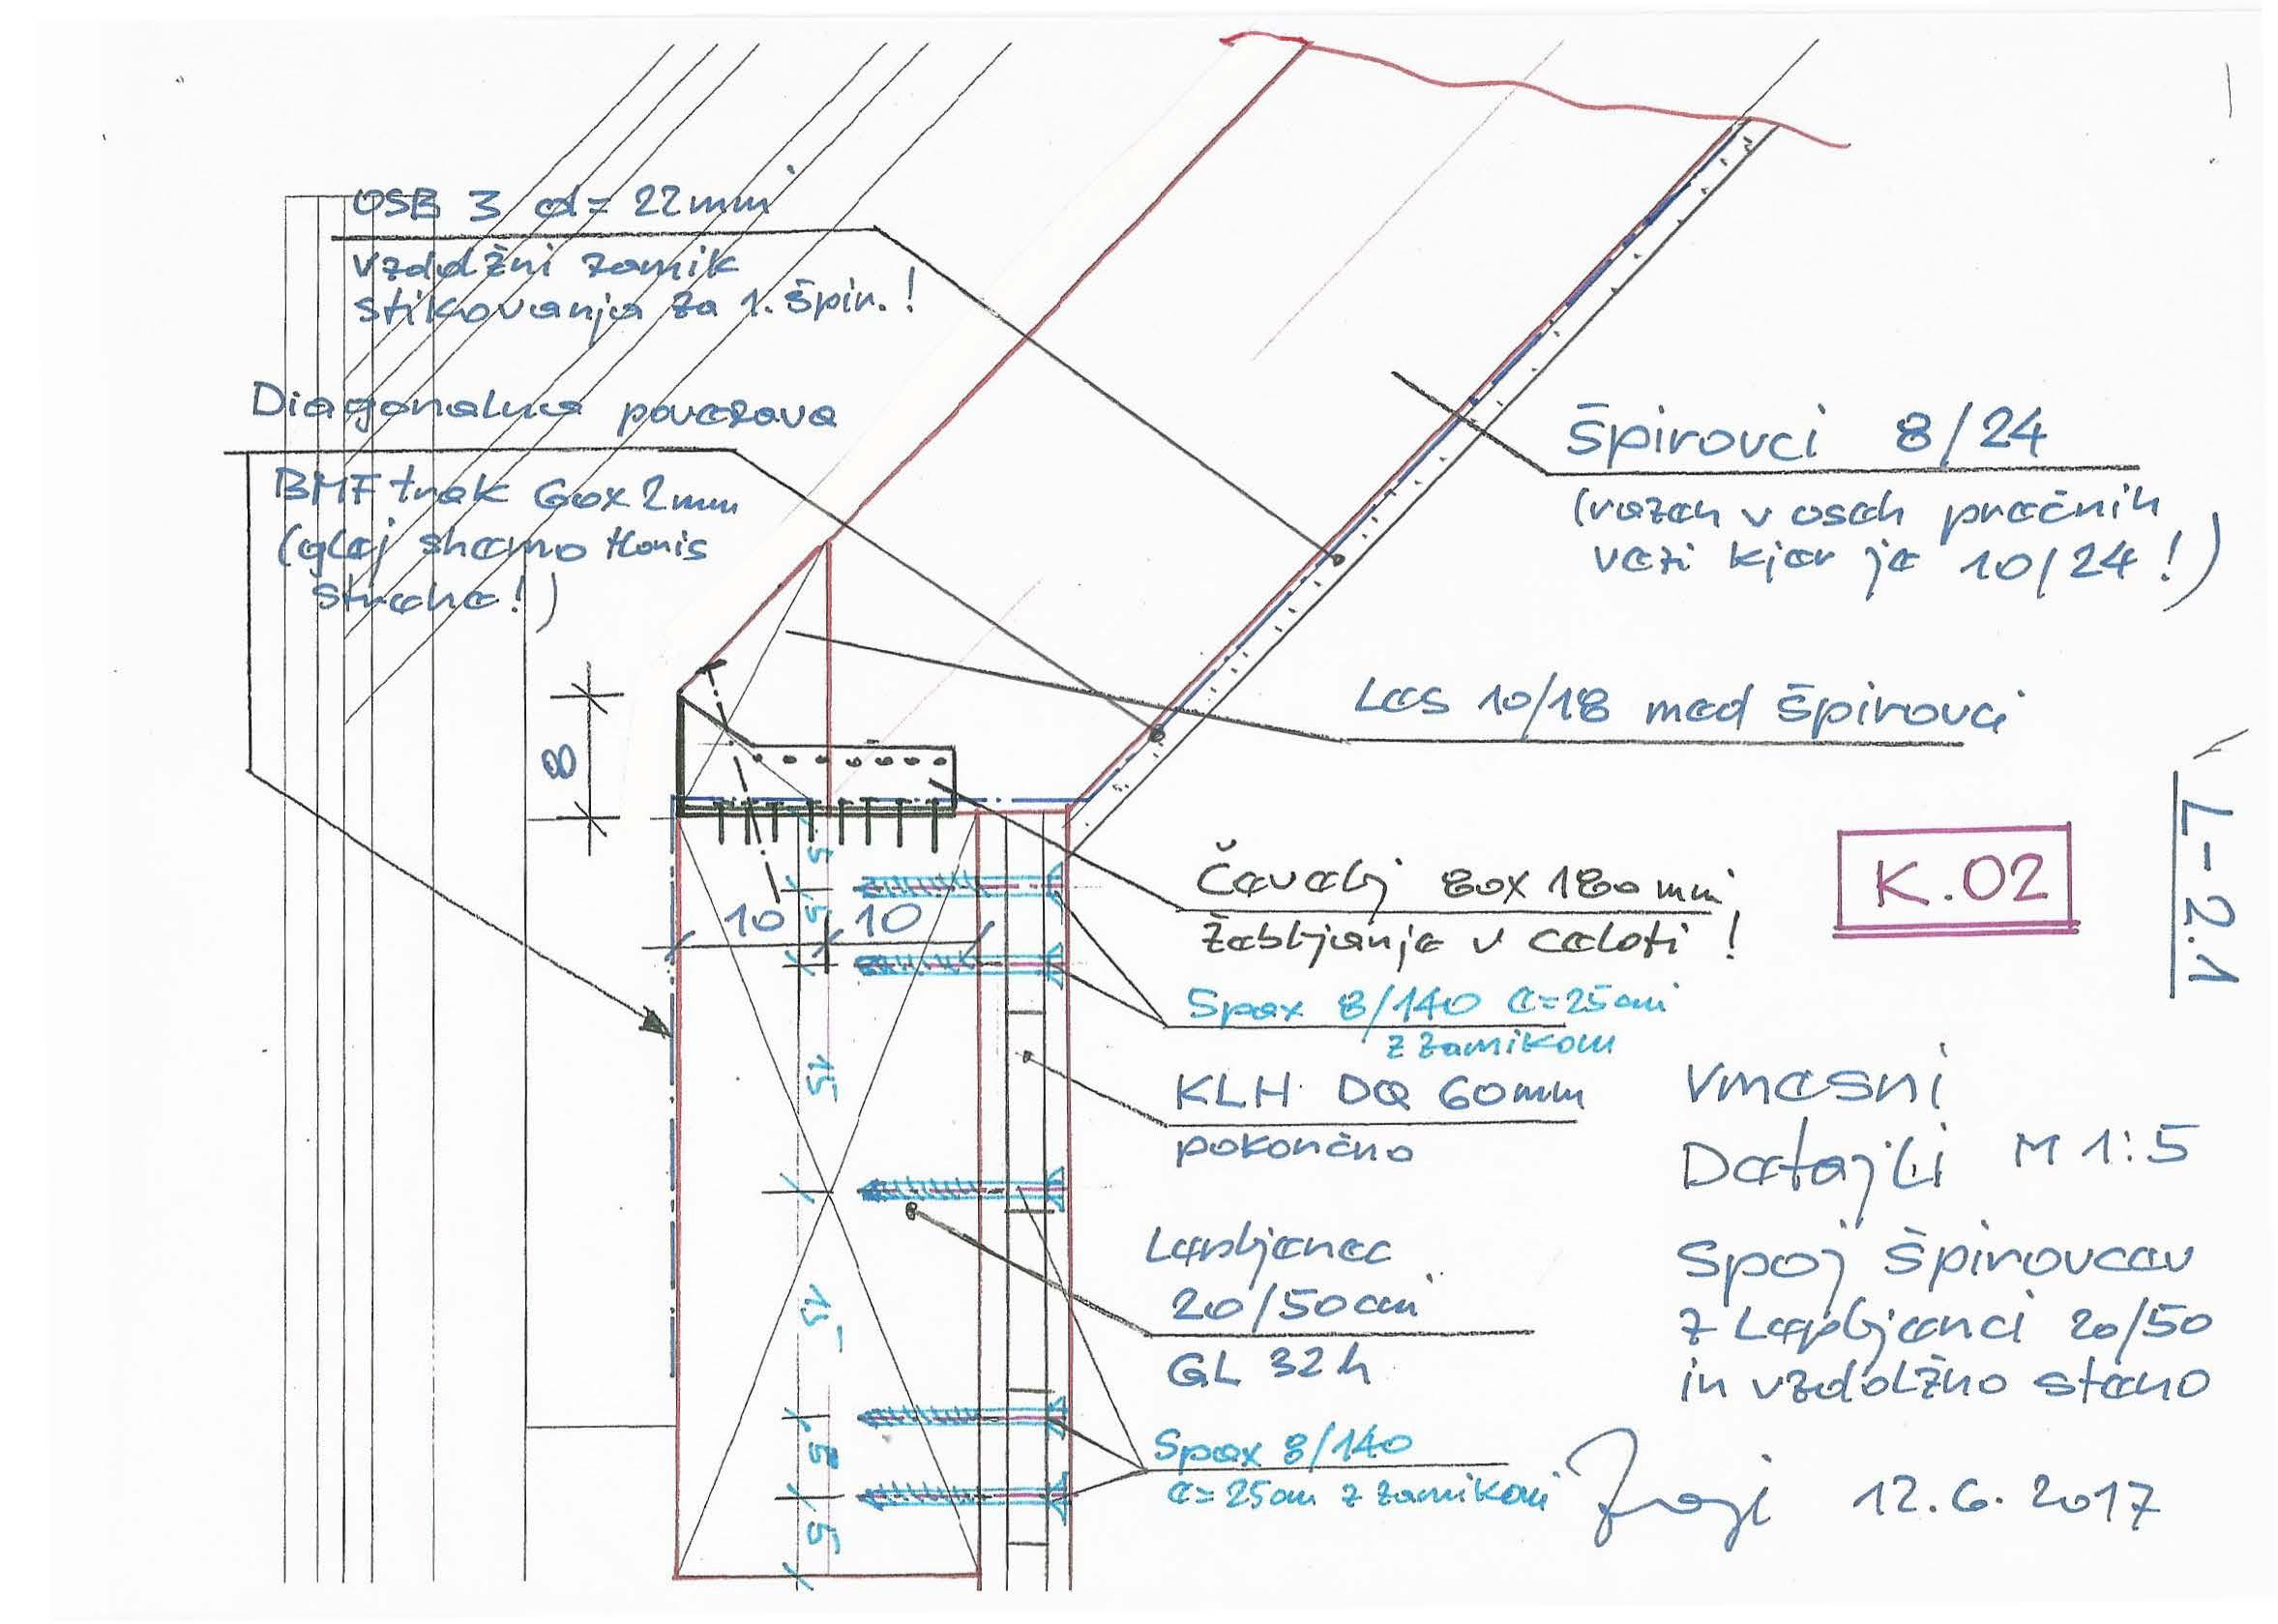 OSB 3 d= 22mm
vzdolžni zamik
stikovanja za 1. špir.!
Diagonalna povezava
BMF trak 60x2mm
(glej shemo
strehe!)
8
Špirovci 8/24
(razen v oseh prečnih
vezi kjer je 10/24!)
Les 10/18 med špirovci
K.02
L-2.1
Čevelj 80x180mm
Žebljanje v celoti!
Spax 8/140 e=25cm
z zamikom
KLH DQ 60mm
pokončno
Lepljenec
20/50cm
GL 32h
Spax 8/140
e=25cm z zamikom
10 10
5
5
15
15
5
5
Vmesni
Detajli M 1:5
Spoj špirovcev
z Lepljenci 20/50
in vzdolžno steno
12.6.2017